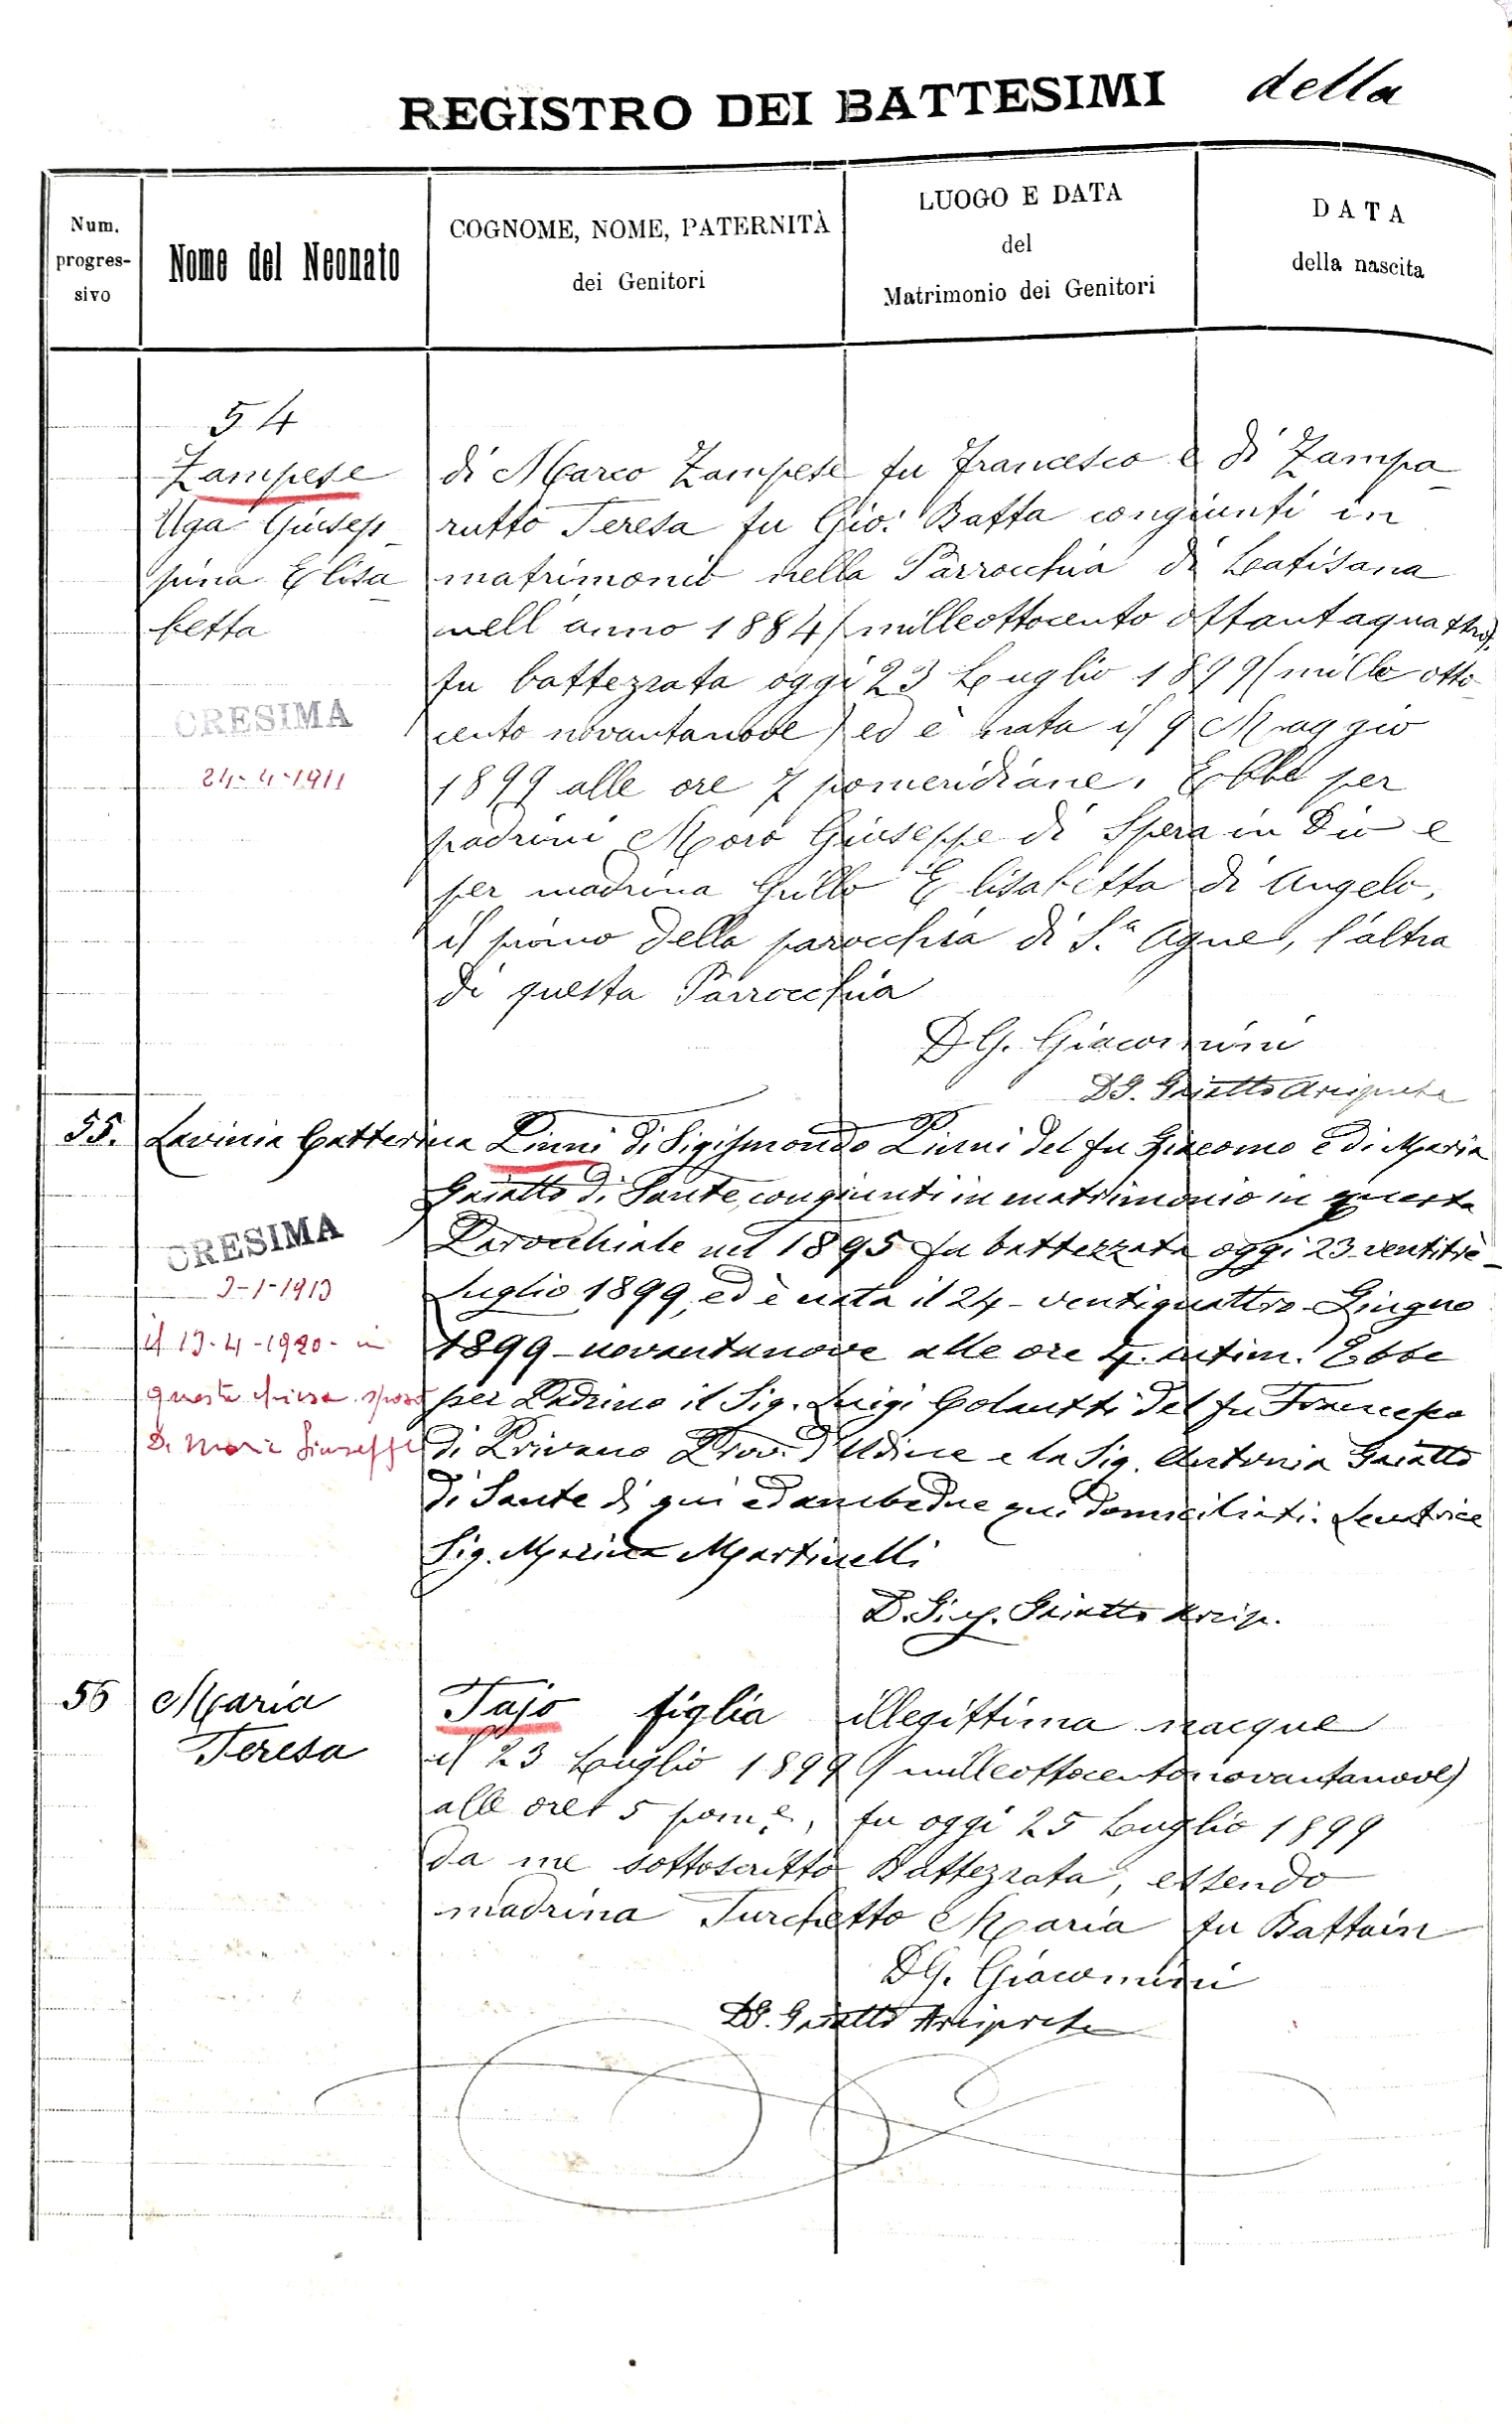 REGISTRO DEI BATTESIMI della
Num. progres- sivo
Nome del Neonato
COGNOME, NOME, PATERNITÀ
dei Genitori
LUOGO E DATA
del
Matrimonio dei Genitori
DATA
della nascita
54
Zampese di Marco Zampese fu Francesco e di Zampa-
Uga Giusep- rutto Teresa fu Gio: Batta congiunti in
pina Elisa- matrimonio nella Parrocchia di Latisana
betta nell'anno 1884 (milleottocento ottantaquattro).
fu battezzata oggi 23 Luglio 1899 (mille otto-
CRESIMA cento novantanove) ed è nata il 9 Maggio
24-4-1911 1899 alle ore 7 pomeridiane. Ebbe per
padrini Moro Giuseppe di Spera in Dio e
per madrina Gullo Elisabetta di Angelo,
il primo della parocchia di S.a Agne, l'altra
di questa Parrocchia
D G. Giacomini
D G. Gaiatto Arciprete
55. Lavinia Catterina Zinni di Sigismondo Zinni del fu Giacomo e di Maria
Gaiatto di Sante, congiunti in matrimonio in questa
CRESIMA Parocchiale nel 1895 fu battezzata oggi 23 ventitrè
3-1-1913 Luglio 1899, ed è nata il 24 - ventiquattro - Giugno
il 13-4-1920 - in 1899 - novantanove alle ore 4. antim. Ebbe
questa chiesa sposò per Padrino il Sig. Luigi Colautti del fu Francesco
De Giuseppe di Privano Prov. d'Udine e la Sig. Antonia Gaiatto
di Sante di qui ed ambedue qui domiciliati. Levatrice
Sig. Marina Martinelli
D. Gius. Gaiatto Arcip.
56 Maria Tajo figlia illegittima nacque
Teresa il 23 Luglio 1899 (milleottocentonovantanove)
alle ore 5 pom.e, fu oggi 25 Luglio 1899
da me sottoscritto Battezzata, essendo
madrina Turchetto Maria fu Battain
D G. Giacomini
D G. Gaiatto Arciprete